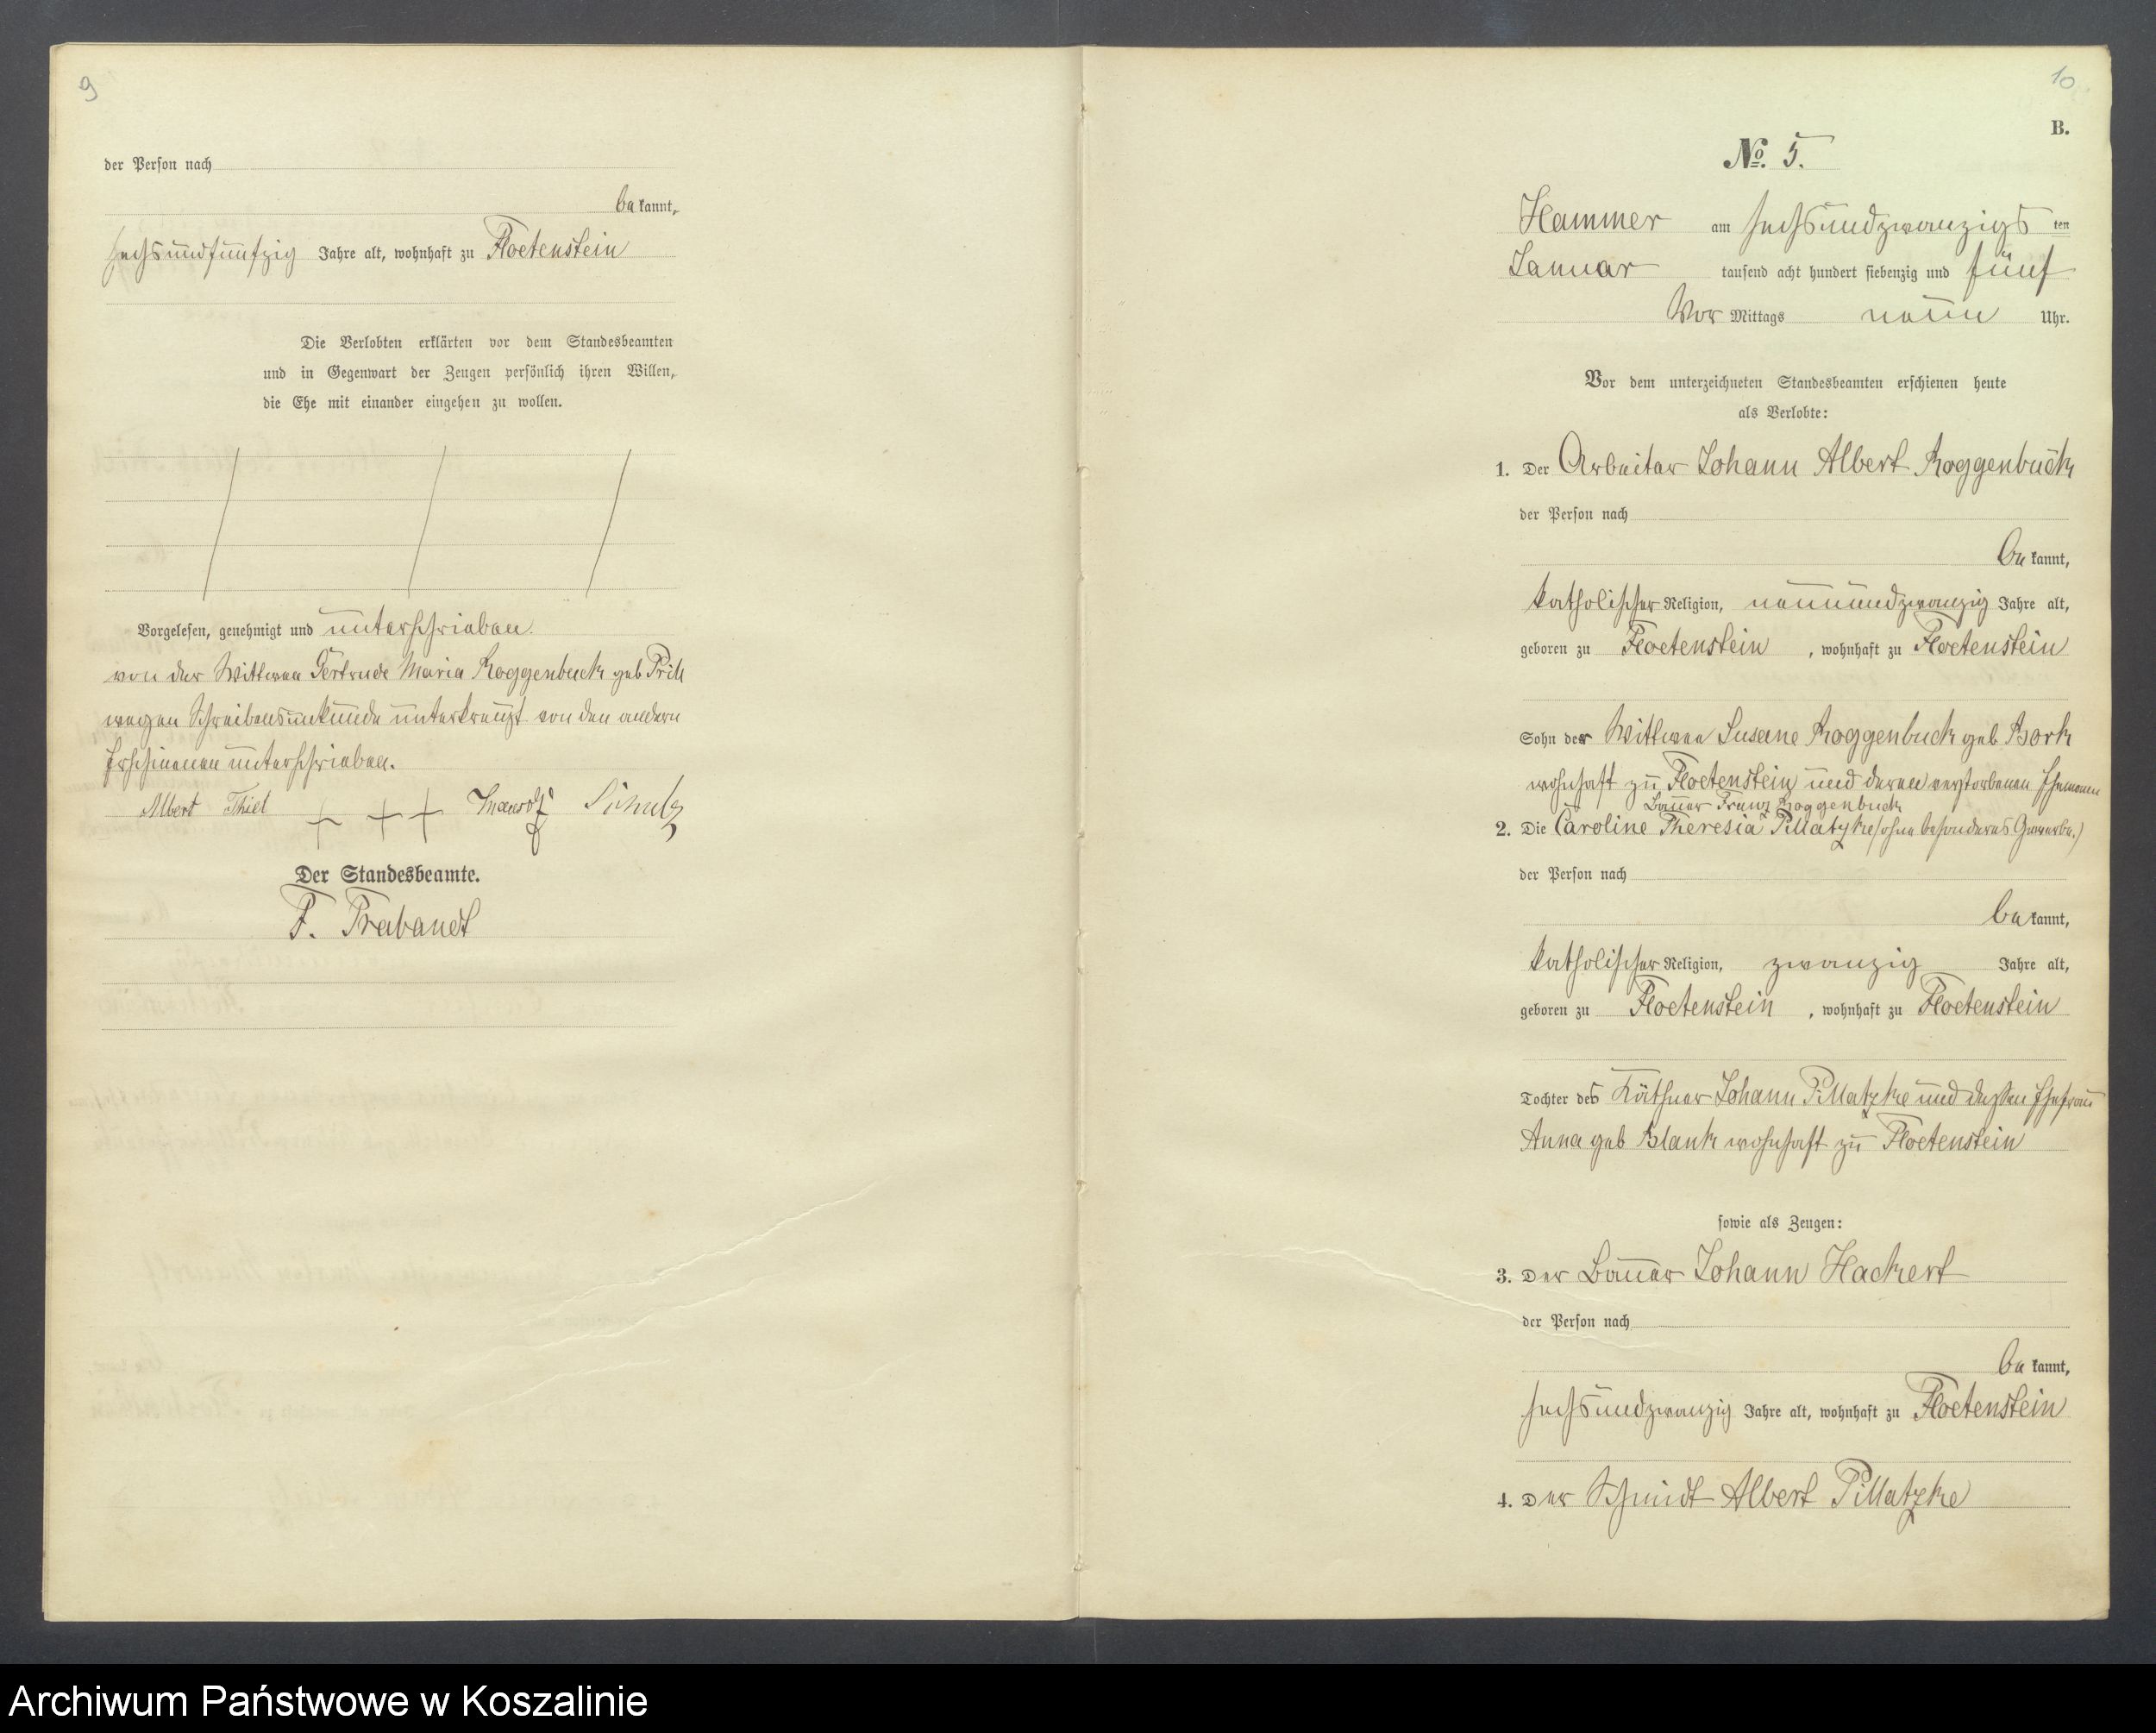 9
der Person nach
bekannt,
sechsundfünfzig Jahre alt, wohnhaft zu Floetenstein
Die Verlobten erklärten vor dem Standesbeamten
und in Gegenwart der Zeugen persönlich ihren Willen,
die Ehe mit einander eingehen zu wollen.
Vorgelesen, genehmigt und unterschrieben.
von der Wittwe Gertrude Maria Roggenbuck geb Prill
wegen Schreibensunkunde unterkreuzt von den andern
Erschienenen unterschrieben.
Albert Thiel +++ Schulz
Der Standesbeamte.
F. Prabandt
10
B.
No. 5.
Hammer am sechsundzwanzigsten
Januar tausend acht hundert siebenzig und fünf
Vor Mittags neun Uhr.
Vor dem unterzeichneten Standesbeamten erschienen heute
als Verlobte:
1. Der Arbeiter Johann Albert Roggenbuck
der Person nach
bekannt,
katholischer Religion, neunundzwanzig Jahre alt,
geboren zu Floetenstein, wohnhaft zu Floetenstein
Sohn der Wittwe Susane Roggenbuck geb Bork
wohnhaft zu Floetenstein und deren verstorbenen Ehemann
Bauer Franz Roggenbuck
2. Die Caroline Theresia Pillatzke (ohne besonderes Gewerbe.)
der Person nach
bekannt,
katholischer Religion, zwanzig Jahre alt,
geboren zu Floetenstein, wohnhaft zu Floetenstein
Tochter des Käthner Johann Pillatzke und dessen Ehefrau
Anna geb Blank wohnhaft zu Floetenstein
sowie als Zeugen:
3. Der Bauer Johann Hackert
der Person nach
bekannt,
sechsundzwanzig Jahre alt, wohnhaft zu Floetenstein
4. Der Schmidt Albert Pillatzke
Archiwum Państwowe w Koszalinie